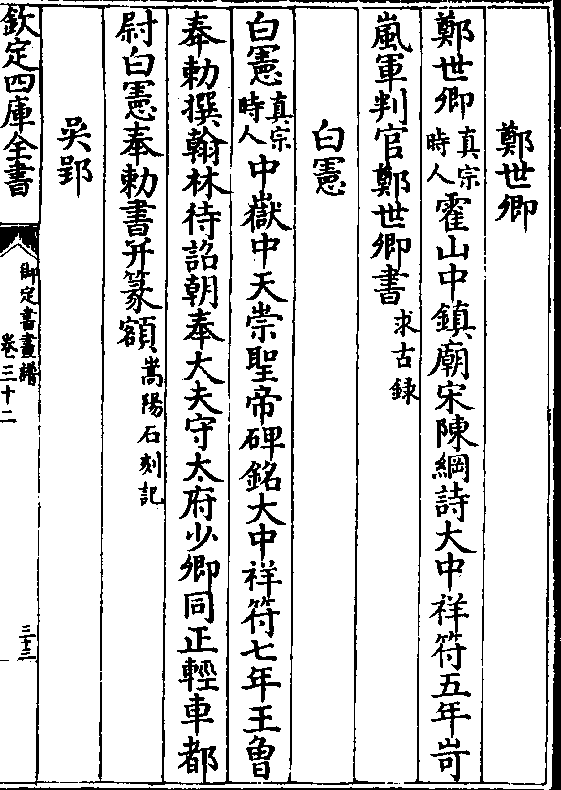 鄭世卿
鄭世卿真宗時人霍山中鎮廟宋陳綱詩大中祥符五年岢
嵐軍判官鄭世卿書求古録
白憲
白憲真宗時人中嶽中天崇聖帝碑銘大中祥符七年王曾
奉勅撰翰林待詔朝奉大夫守太府少卿同正輕車都
尉白憲奉勅書并篆額嵩陽石刻記
吳郢
欽定四庫全書
御定書畫譜
卷三十二
三十三